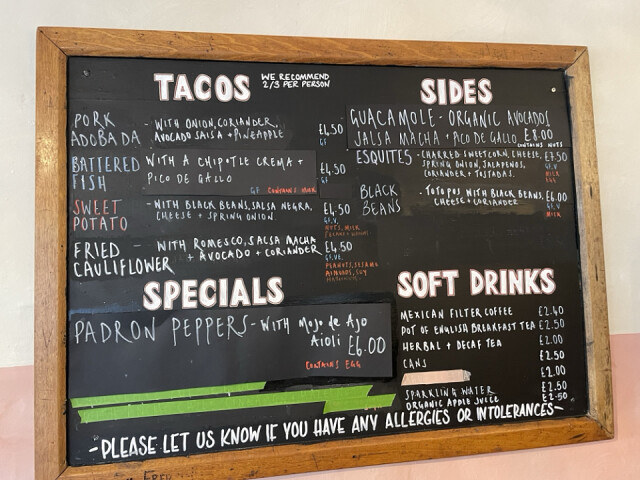 TACOS
WE RECOMMEND
2/3 PER PERSON
PORK ADOBADA - WITH ONION, CORIANDER,
AVOCADO SALSA + PINEAPPLE
£4.50
GF
BATTERED FISH
WITH A CHIPOTLE CREMA +
PICO DE GALLO
£4.50
GF
GF CONTAINS MILK
SWEET POTATO - WITH BLACK BEANS, SALSA NEGRA,
CHEESE + SPRING ONION
£4.50
GF, V
NUTS, MILK
FRIED CAULIFLOWER - WITH ROMESCO, SALSA MACHA
+ AVOCADO + CORIANDER
£4.50
GF, VE
PEANUTS, SESAME
ALMONDS, SOY
SPECIALS
PADRON PEPPERS - WITH Mojo de Ajo
Aioli £6.00
CONTAINS EGG
SIDES
GUACAMOLE - ORGANIC AVOCADOS
SALSA MACHA + PICO DE GALLO £8.00
CONTAINS NUTS
ESQUITES - CHARRED SWEETCORN, CHEESE,
SPRING ONION, JALAPENOS,
CORIANDER + TOSTADAS.
£7.50
GF, V
MILK
EGG
BLACK BEANS - TOTOPOS WITH BLACK BEANS,
CHEESE + CORIANDER
£6.00
GF, V
MILK
SOFT DRINKS
MEXICAN FILTER COFFEE £2.40
POT OF ENGLISH BREAKFAST TEA £2.50
HERBAL + DECAF TEA £2.00
CANS £2.50
£2.00
SPARKLING WATER £2.50
ORGANIC APPLE JUICE £2.50
-PLEASE LET US KNOW IF YOU HAVE ANY ALLERGIES OR INTOLERANCES-